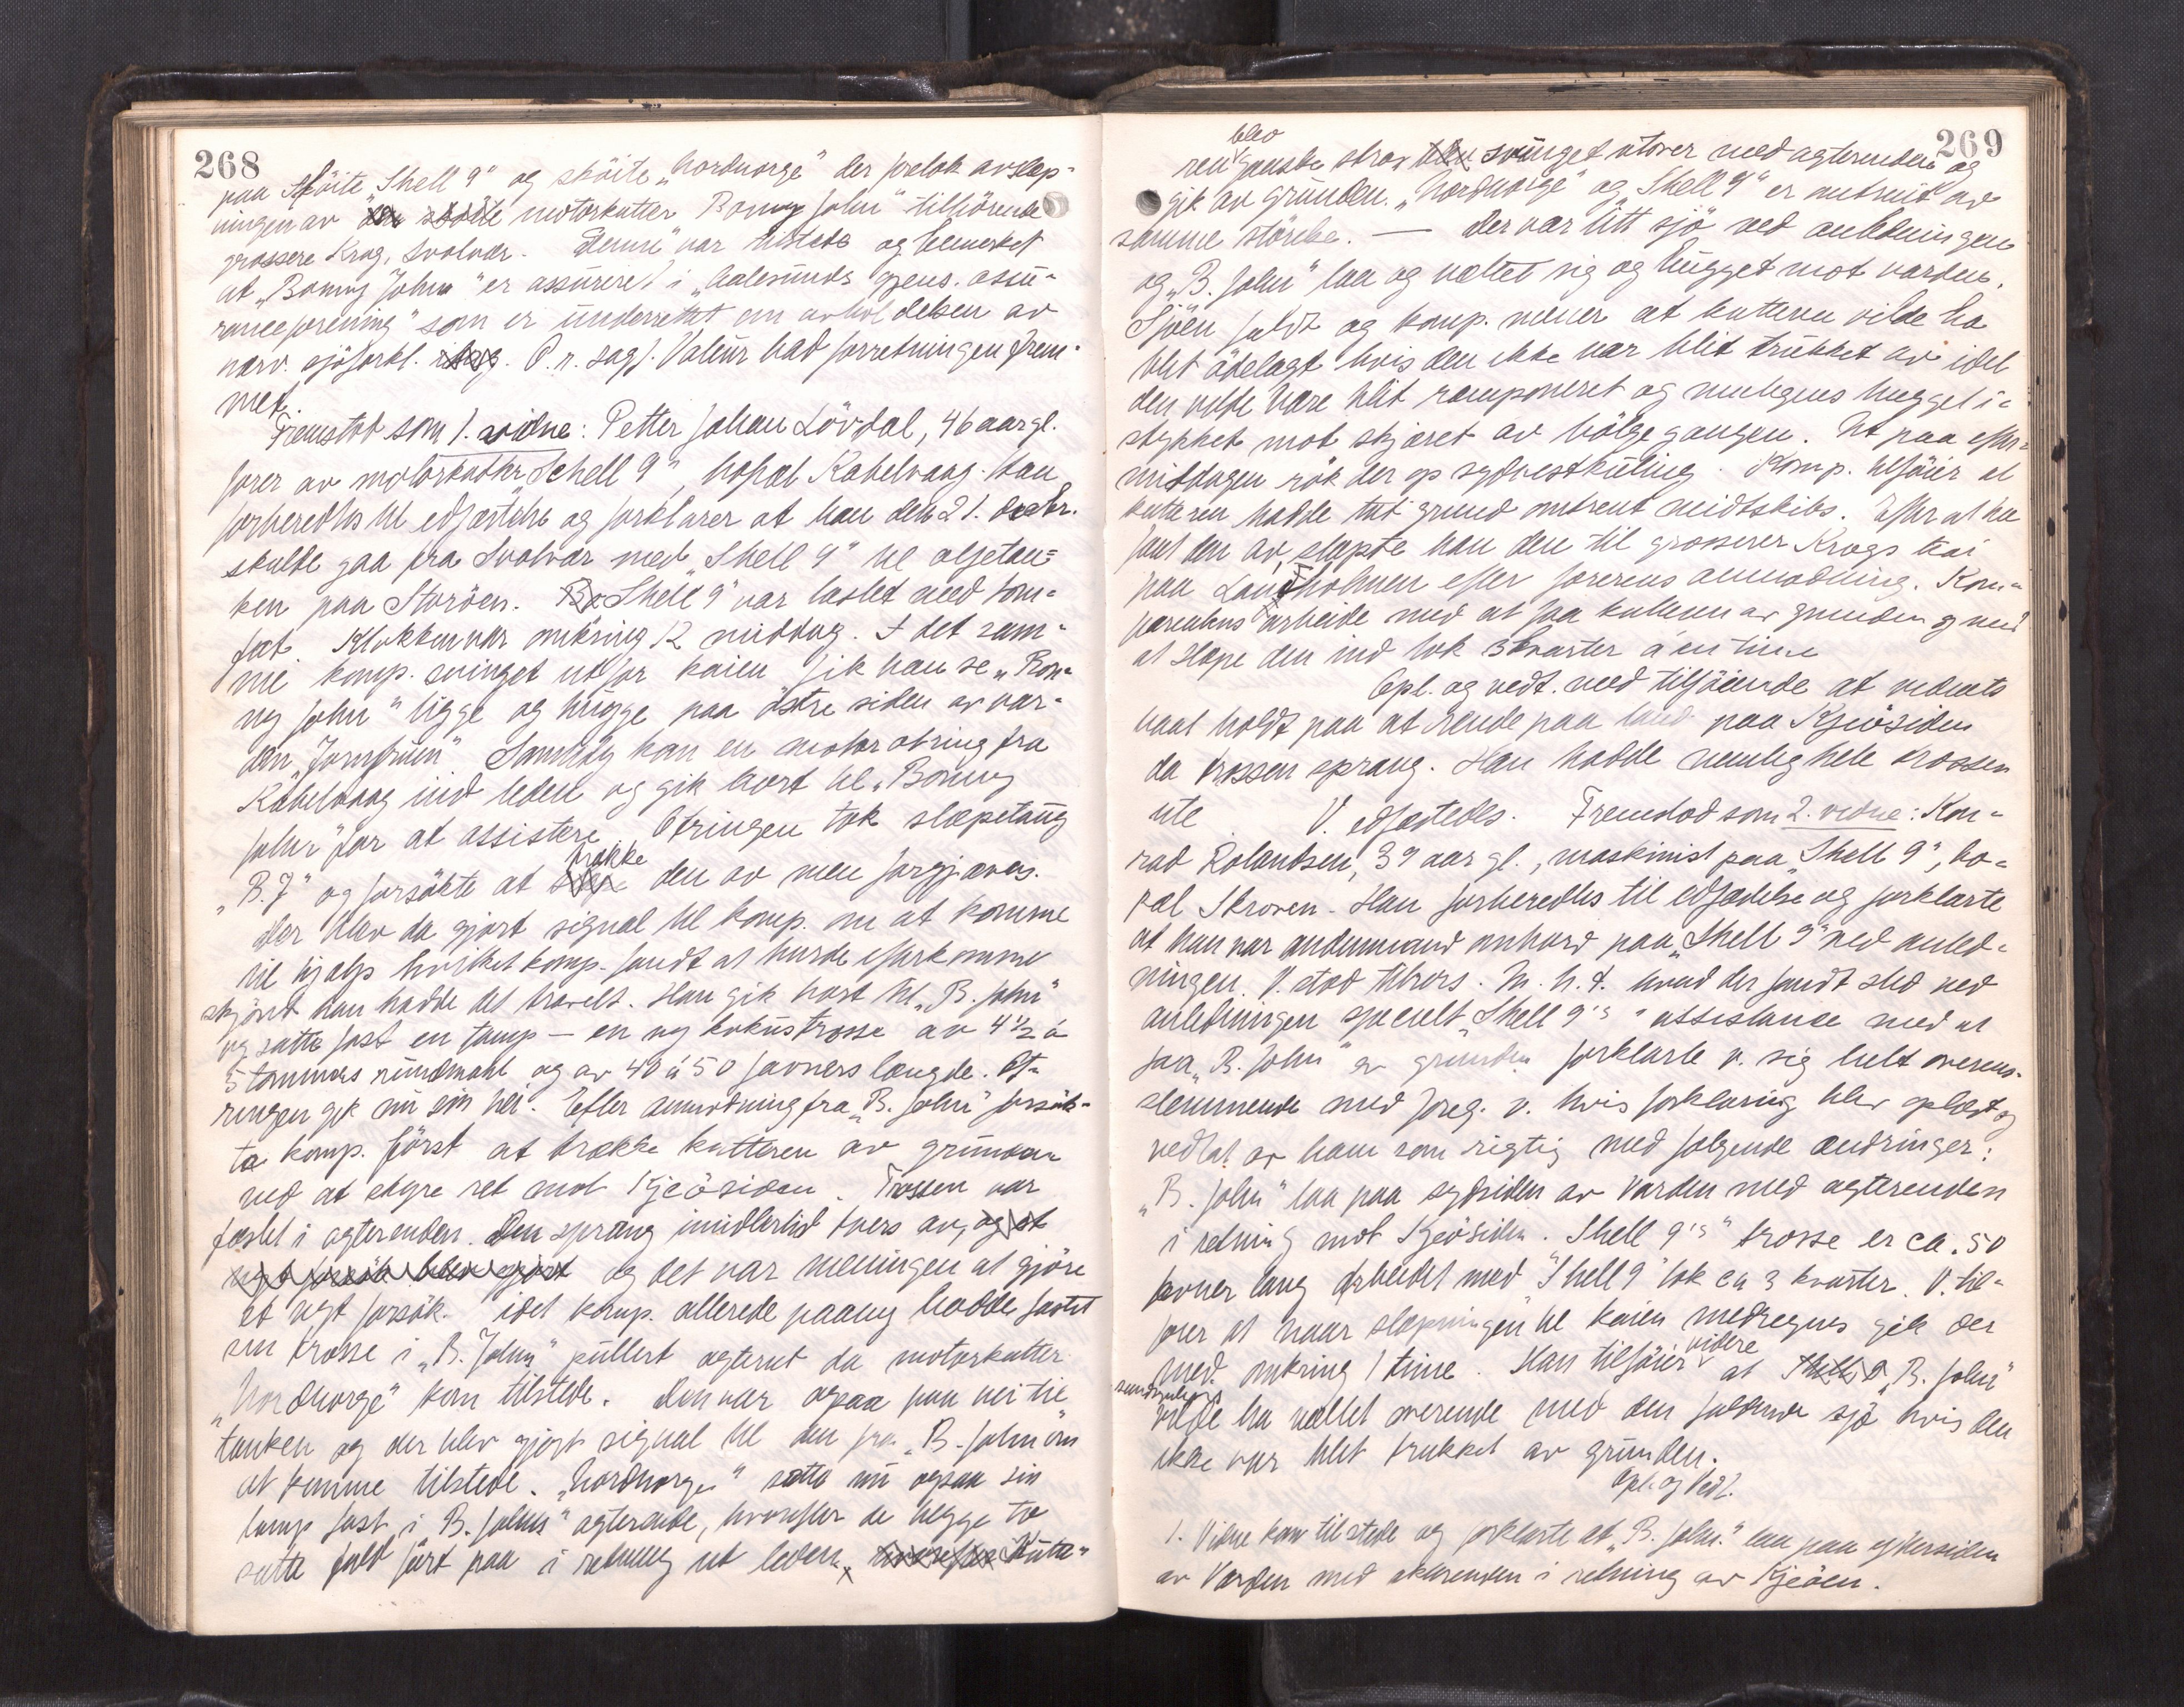 268
paa sköite "Shell 9" og sköite "Nordnorge" der foretok avslæp-
ningen av motorkutter "Bonny John" tilhörende
grosserer Krog, Svolvær. Denne var tilstede og bemerket
at "Bonny John" er assüreret i "Aalesünds gjens. assü-
ranceforening" som er ünderrettet om avholdelsen av
nærv. sjöforkl. O.r. sagf. Valeur bad forretningen frem-
met.
Fremstod som 1. vidne: Petter Johan Lövdal, 46 aar gl.
förer av motorkutter "Schell 9", bopæl Kabelvaag. Han
forberedtes til edfæstelse og forklarer at han den 21. desbr.
skulde gaa fra Svolvær med "Shell 9" til oljetan-
ken paa Storöen. "Shell 9" var lastet med tom-
fat. Klokken var omkring 12 middag. I det sam-
me komp. svinget ut for kaien fik han se "Bon-
ny John" ligge og hügge paa östre siden av var-
den "Jomfrüen". Samtidig kom en motorotring fra
Kabelvaag ind leden og gik bort til "Bonny
John" for at assistere. Otringen tok slæpetaüg
trække
"B.J" og forsökte at den av men forgjæves.
Der blev da gjort signal til komp. om at komme
til hjælp hvilket komp. fandt at burde efterkomme
skjönt han hadde det travelt. Han gik bort til "B. John"
og satte fast en tamp – en ny kokustrosse av 4½ á
5 tommers ründmaal og av 40 á 50 favners længde. Ot-
ringen gik nü sin vei. Efter anmodning fra "B. John" forsök-
te komp. först at trække kutteren av grünnen
ved at styre ret mot Kjeösiden. Trossen var
fæstet i agterenden. Den sprang imidlertid tvers av, og et
nyt forsök blev gjort og det var meningen at gjöre
et nyt forsök. idet komp. allerede paany hadde fæstet
sin trosse i "B. Johns" püllert agterut da motorkutter
"Nordnorge" kom tilstede. Den var ogsaa paa vei til
tanken og der blev gjort signal til den fra "B. John" om
at komme tilstede. "Nordnorge" satte nü ogsaa sin
tamp fast i "B. Johns" agterende, hvorefter de begge to
satte fuld fart paa i retning ut leden. Kutte-
269
blev
ren ganske strax svünget utover med agterenden og
gik av gründen. "Nordnorge" og "Shell 9" er omtrent av
samme störelse. — Der var litt sjö ved anledningen
og "B. John" laa og væltet sig og hügget mot varden.
Sjöen faldt og komp. mener at kutteren vilde ha
blit ödelagt hvis den ikke var blit trükket av idet
den vilde være blit ramponeret og muligens hugget i
stykker mot skjæret av bölgegangen. Ut paa efter-
middagen rök der op sydvestküling. Komp. tilföier at
kutteren hadde tat grund omtrent midtskibs. Efter at ha
faat den av slæpte han den til grosserer Krogs kai
paa Landholmen efter förerens anmodning. Kom-
parentens arbeide med at faa kutteren av grunden og med
at slæpe den ind tok 3 kvarter á en time
Opl. og vedt. med tilföiende at vidnets
baat holdt paa at rende paa land paa Kjeösiden
da trossen sprang. Han hadde nemlig hele trossen
ute V. edfæstedes. Fremstod som 2. vidne: Kon-
rad Rolandsen, 39 aar gl., maskinist paa "Shell 9", bo-
pæl Skroven. Han forberedtes til edfæstelse og forklarte
at han var andenmand ombord paa "Shell 9" ved anled-
ningen. V. stod tilrors. M.h.t. hvad der fandt sted ved
anledningen specielt "Shell 9's" assistance med at
faa "B. John" av grünnden forklarte v. sig helt overens-
stemmende med foreg. v. hvis forklaring blev oplæst og
vedtat av ham som rigtig med følgende endringer:
"B. John" laa paa sydsiden av varden med agterenden
i retning mot Kjeösiden. Shell 9's" trosse er ca. 50
favner lang Arbeidet med "Shell 9" tok ca 3 kvarter. V. til-
föier at naar slæpningen til kaien medregnes gik der
videre
med omkring 1 time. Han tilföier at "B. John"
sandsynligvis
vilde ha væltet overende med den faldende sjö hvis den
ikke var blit trukket av gründen.
Opl. og Vedt.
1. Vidne kom tilstede og forklarte at "B. John" laa paa yttersiden
av Varden med akterenden i retning av Kjeöen.